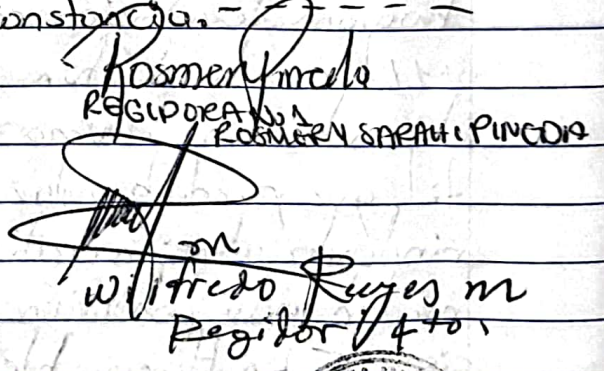 onstancia. - - - - - -
Rosmery Pineda
REGIDORA No. 1
ROSMERY SARAHI PINEDA
Wilfredo Reyes M
Regidor 4to.